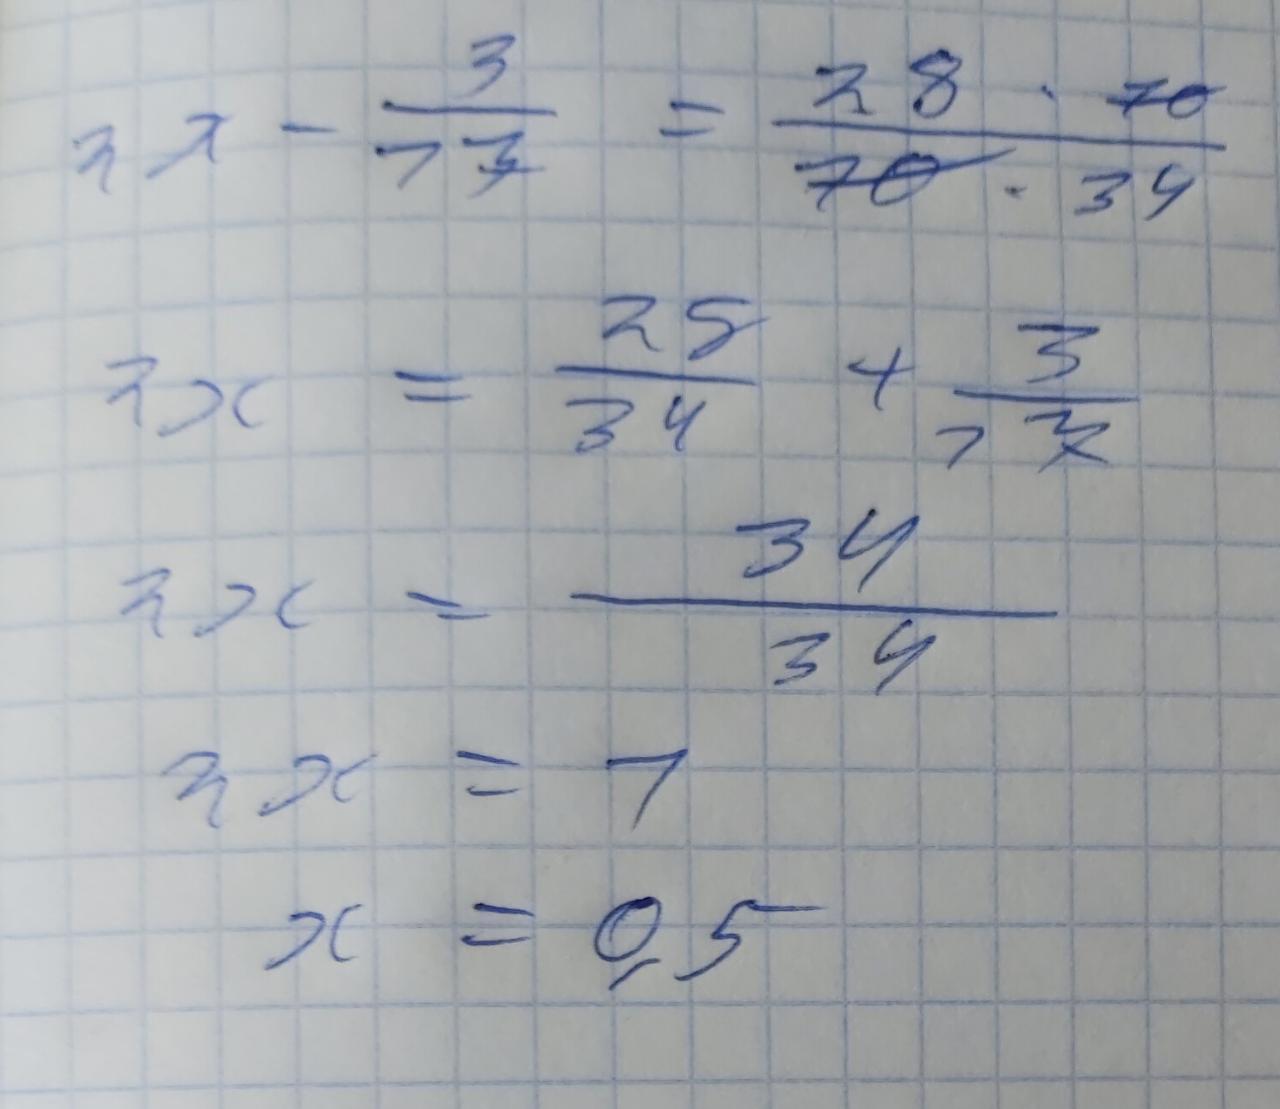 2x - 3/17 = (28 · 10)/(10 · 34)
2x = 28/34 + 3/17
2x = 34/34
2x = 1
x = 0,5